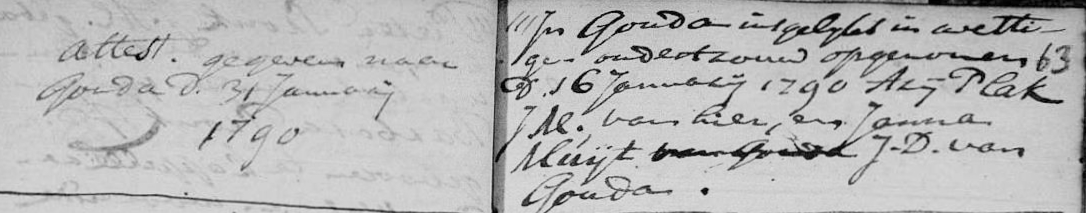 attest. gegeven naar
Gouda d. 31 January
1790
In Gouda insgelyks in wetti-
gen ondertrouw opgenomen
63
d. 16 January 1790 Arij Plak
J.M. van hier, en Janna
van Gouda J.D. van
Gouda.